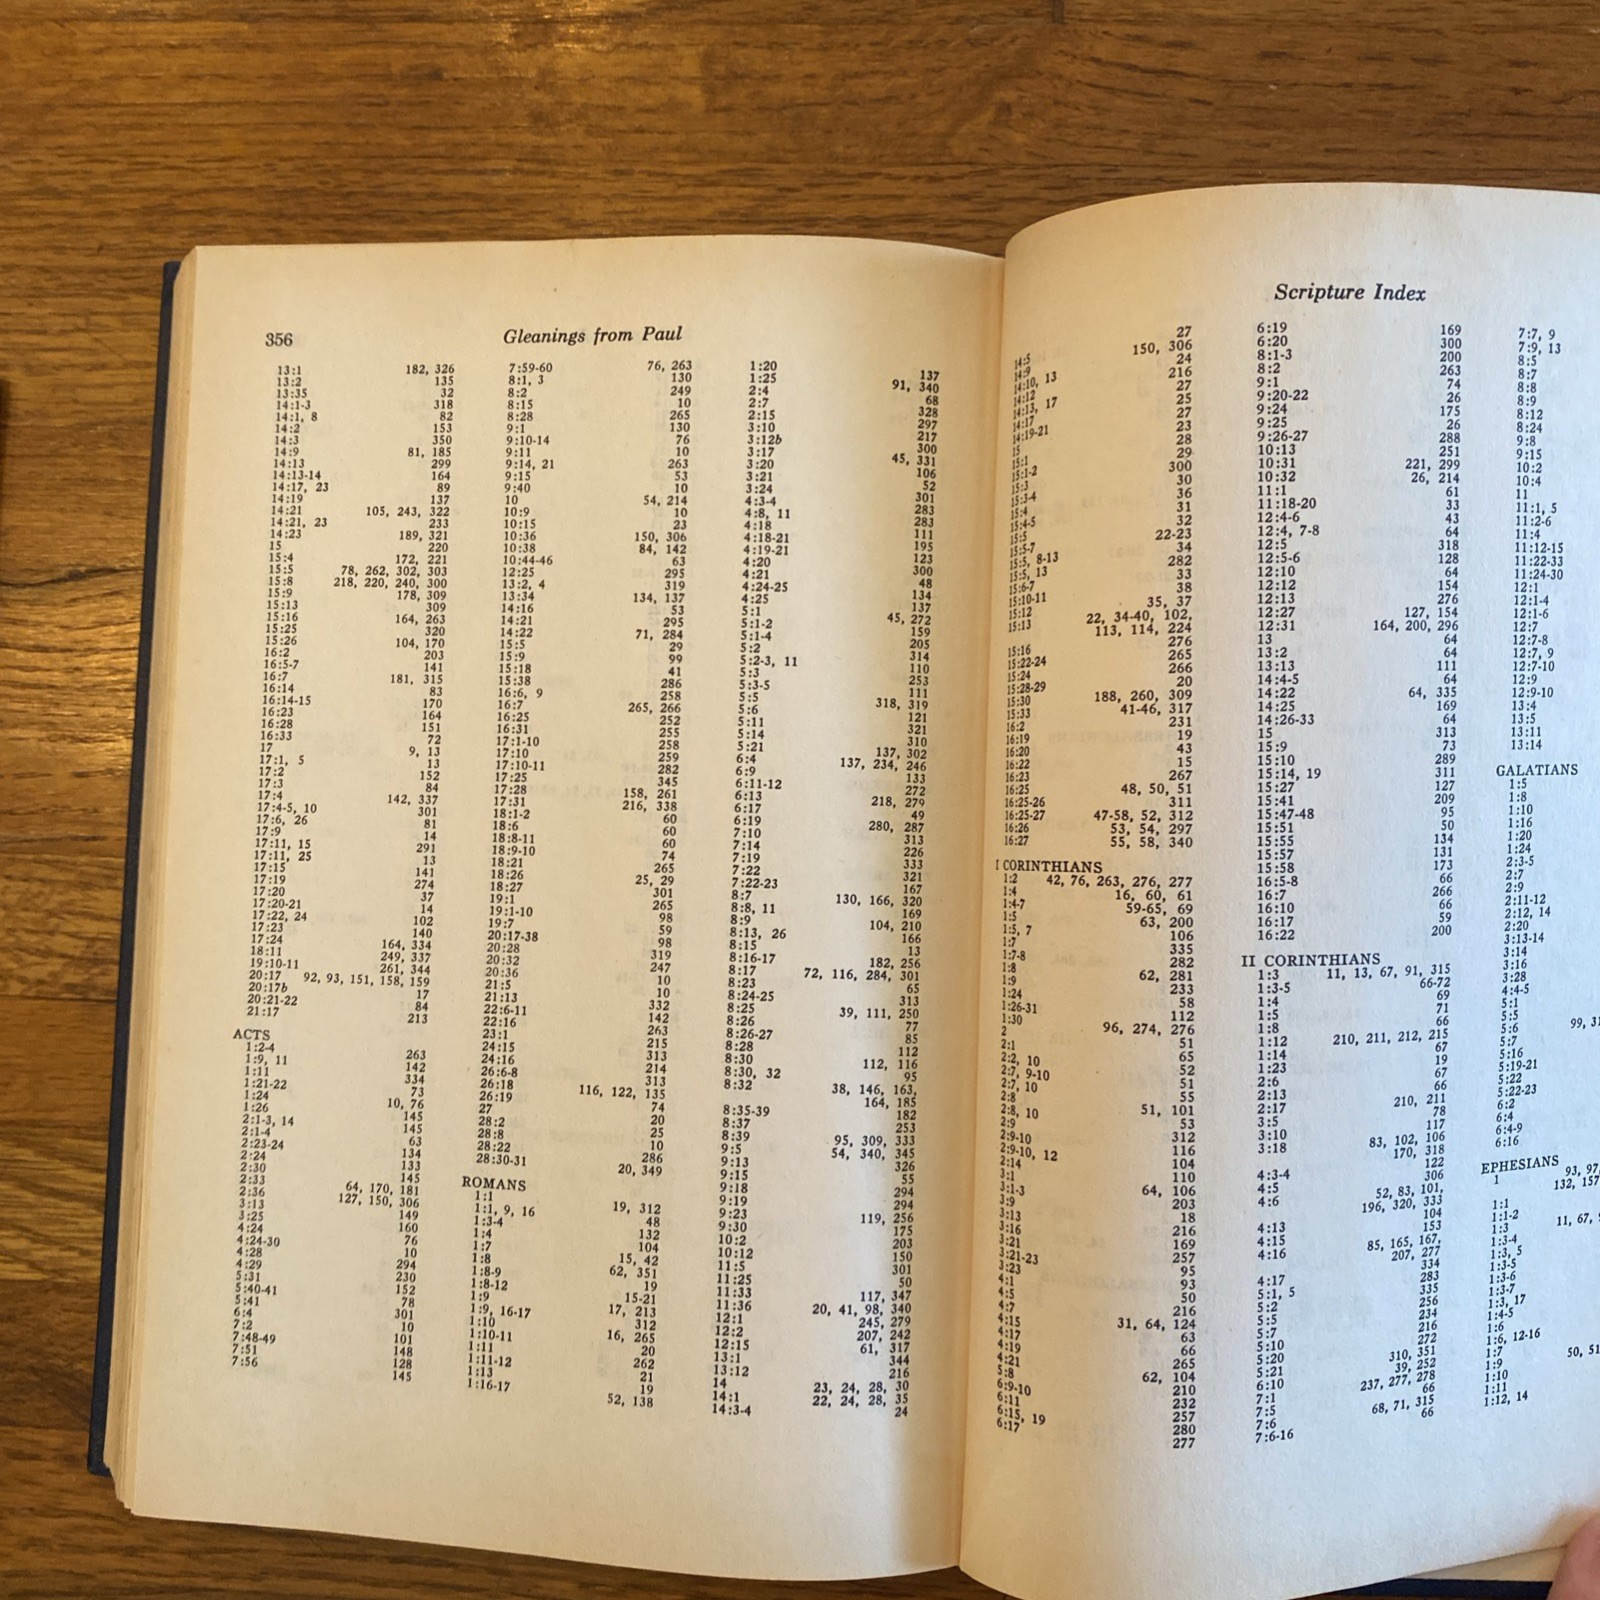 356
Gleanings from Paul
13:1 182, 326
13:2 135
13:35 32
14:1-3 318
14:1, 8 82
14:2 153
14:3 350
14:9 81, 185
14:13 299
14:13-14 164
14:17, 23 89
14:19 137
14:21 105, 243, 322
14:21, 23 233
14:23 189, 321
15 220
15:4 172, 221
15:5 78, 262, 302, 303
15:8 218, 220, 240, 300
15:9 178, 309
15:13 309
15:16 164, 263
15:25 320
15:26 104, 170
16:2 203
16:5-7 141
16:7 181, 315
16:14 83
16:14-15 170
16:23 164
16:28 151
16:33 72
17 9, 13
17:1, 5 13
17:2 152
17:3 84
17:4 142, 337
17:4-5, 10 301
17:6, 26 81
17:9 14
17:11, 15 291
17:11, 25 13
17:15 141
17:19 274
17:20 37
17:20-21 14
17:22, 24 102
17:23 140
17:24 164, 334
18:11 249, 337
19:10-11 261, 344
20:17 92, 93, 151, 158, 159
20:17b 17
20:21-22 84
21:17 213
ACTS
1:2-4 263
1:9, 11 142
1:11 334
1:21-22 73
1:24 10, 76
1:26 145
2:1-3, 14 145
2:1-4 63
2:23-24 134
2:24 133
2:30 145
2:33 64, 170, 181
2:36 127, 150, 306
3:13 149
3:25 160
4:24 76
4:24-30 10
4:28 294
4:29 230
5:31 152
5:40-41 78
5:41 301
6:4 10
7:2 101
7:48-49 148
7:51 128
7:56 145
7:59-60 76, 263
8:1, 3 130
8:2 249
8:15 10
8:28 265
9:1 130
9:10-14 76
9:11 10
9:14, 21 263
9:15 53
9:40 10
10 54, 214
10:9 10
10:15 23
10:36 150, 306
10:38 84, 142
10:44-46 63
12:25 295
13:2, 4 319
13:34 134, 137
14:16 53
14:21 295
14:22 71, 284
15:5 29
15:9 99
15:18 41
15:38 286
16:6, 9 258
16:7 265, 266
16:25 252
16:31 255
17:1-10 258
17:10 259
17:10-11 282
17:25 345
17:28 158, 261
17:31 216, 338
18:1-2 60
18:6 60
18:8-11 60
18:9-10 74
18:21 265
18:26 25, 29
18:27 301
19:1 265
19:1-10 98
19:7 59
20:17-38 98
20:28 319
20:32 247
20:36 10
21:5 10
21:13 332
22:6-11 142
22:16 263
23:1 215
24:15 313
24:16 214
26:6-8 313
26:18 116, 122, 135
26:19 74
27 20
28:2 25
28:8 10
28:22 286
28:30-31 20, 349
ROMANS
1:1 19, 312
1:1, 9, 16 48
1:3-4 132
1:4 104
1:7 15, 42
1:8 62, 351
1:8-9 19
1:8-12 15-21
1:9 17, 213
1:9, 16-17 312
1:10 16, 265
1:10-11 20
1:11 262
1:11-12 21
1:13 19
1:16-17 52, 138
1:20 137
1:25 91, 340
2:4 68
2:7 328
2:15 297
3:10 217
3:12b 300
3:17 45, 331
3:20 106
3:21 52
3:24 301
4:3-4 283
4:8, 11 283
4:18 111
4:18-21 195
4:19-21 123
4:20 300
4:21 48
4:24-25 134
4:25 137
5:1 45, 272
5:1-2 159
5:1-4 205
5:2 314
5:2-3, 11 110
5:3 253
5:3-5 111
5:5 318, 319
5:6 121
5:11 321
5:14 310
5:21 137, 302
6:4 137, 234, 246
6:9 133
6:11-12 272
6:13 218, 279
6:17 49
6:19 280, 287
7:10 313
7:14 226
7:19 333
7:22 321
7:22-23 167
8:7 130, 166, 320
8:8, 11 169
8:9 104, 210
8:13, 26 166
8:15 13
8:16-17 182, 256
8:17 72, 116, 284, 301
8:23 65
8:24-25 313
8:25 39, 111, 250
8:26 77
8:26-27 85
8:28 112
8:30 112, 116
8:30, 32 95
8:32 38, 146, 163,
164, 185
8:35-39 182
8:37 253
8:39 95, 309, 333
9:5 54, 340, 345
9:13 326
9:15 55
9:18 294
9:19 294
9:23 119, 256
9:30 175
10:2 203
10:12 150
11:5 301
11:25 50
11:33 117, 347
11:36 20, 41, 98, 340
12:1 245, 279
12:2 207, 242
12:15 61, 317
13:1 344
13:12 216
14 23, 24, 28, 30
14:1 22, 24, 28, 35
14:3-4 24
Scripture Index
14:5 27
14:9 150, 306
14:10, 13 24
14:12 216
14:13, 17 27
14:17 25
14:19-21 27
15 23
15:1 28
15:1-2 29
15:3 300
15:3-4 30
15:4 36
15:4-5 31
15:5 32
15:5-7 22-23
15:5, 8-13 34
15:5, 13 282
15:6-7 33
15:10-11 38
15:12 35, 37
15:13 22, 34-40, 102,
113, 114, 224
15:16 276
15:22-24 265
15:24 266
15:28-29 20
15:30 188, 260, 309
15:33 41-46, 317
16:2 231
16:19 19
16:20 43
16:22 15
16:23 267
16:25 48, 50, 51
16:25-26 311
16:25-27 47-58, 52, 312
16:26 53, 54, 297
16:27 55, 58, 340
I CORINTHIANS
1:2 42, 76, 263, 276, 277
1:4 16, 60, 61
1:4-7 59-65, 69
1:5 63, 200
1:5, 7 106
1:7 335
1:7-8 282
1:8 62, 281
1:9 233
1:24 58
1:26-31 112
1:30 96, 274, 276
2 51
2:1 65
2:2, 10 52
2:7, 9-10 51
2:7, 10 55
2:8 51, 101
2:8, 10 53
2:9 312
2:9-10 116
2:9-10, 12 104
2:14 110
3:1 64, 106
3:1-3 203
3:9 18
3:13 216
3:16 169
3:21 257
3:21-23 95
3:23 93
4:1 50
4:5 216
4:7 31, 64, 124
4:15 63
4:17 66
4:19 265
4:21 62, 104
5:8 210
6:9-10 232
6:11 257
6:15, 19 280
6:17 277
6:19 169
6:20 300
8:1-3 200
8:2 263
9:1 74
9:20-22 26
9:24 175
9:25 26
9:26-27 288
10:13 251
10:31 221, 299
10:32 26, 214
11:1 61
11:18-20 33
12:4-6 43
12:4, 7-8 64
12:5 318
12:5-6 128
12:10 64
12:12 154
12:13 276
12:27 127, 154
12:31 164, 200, 296
13 64
13:2 64
13:13 111
14:4-5 64
14:22 64, 335
14:25 169
14:26-33 64
15 313
15:9 73
15:10 289
15:14, 19 311
15:27 127
15:41 209
15:47-48 95
15:51 50
15:55 134
15:57 131
15:58 173
16:5-8 66
16:7 266
16:10 66
16:17 59
16:22 200
II CORINTHIANS
1:3 11, 13, 67, 91, 315
1:3-5 66-72
1:4 69
1:5 71
1:8 66
1:12 210, 211, 212, 215
1:14 67
1:23 19
2:6 67
2:13 66
2:17 210, 211
3:5 78
3:10 117
3:18 83, 102, 106
170, 318
4:3-4 122
4:5 306
4:6 52, 83, 101,
196, 320, 333
4:13 104
4:15 153
4:16 85, 165, 167,
207, 277
4:17 334
5:1, 5 283
5:2 335
5:5 256
5:7 234
5:10 216
5:20 272
5:21 310, 351
6:10 39, 252
7:1 237, 277, 278
7:5 66
7:6 68, 71, 315
7:6-16 66
7:7, 9
7:9, 13
8:5
8:7
8:8
8:9
8:12
8:24
9:8
9:15
10:2
10:4
11
11:1, 5
11:2-6
11:4
11:12-15
11:22-33
11:24-30
12:1
12:1-4
12:1-6
12:7
12:7-8
12:7, 9
12:7-10
12:9
12:9-10
13:4
13:5
13:11
13:14
GALATIANS
1:5
1:8
1:10
1:16
1:20
1:24
2:3-5
2:7
2:9
2:11-12
2:12, 14
2:20
3:13-14
3:14
3:16
3:28
4:4-5
5:1
5:5
5:6 99,
5:7
5:16
5:19-21
5:22
5:22-23
6:2
6:4
6:4-9
6:16
EPHESIANS
1 93, 97
132, 157
1:1
1:1-2
1:3 11, 67,
1:3-4
1:3, 5
1:3-5
1:3-6
1:3-7
1:3, 17
1:4-5
1:6
1:6, 12-16
1:7 50, 51
1:9
1:10
1:11
1:12, 14